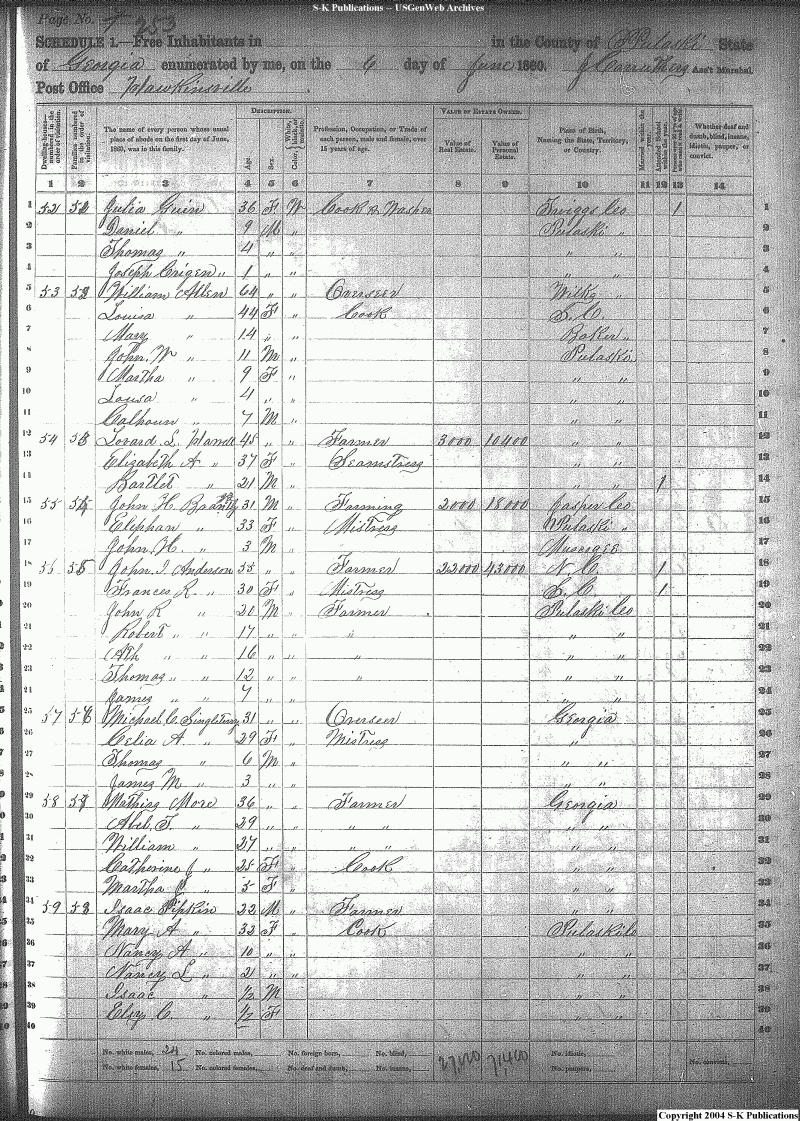 S-K Publications -- USGenWeb Archives
Page No. 7 253
SCHEDULE 1.—Free Inhabitants in in the County of Pulaski State
of Georgia enumerated by me, on the 6 day of June 1860. J Carruthers Ass't Marshal.
Post Office Hawkinsville
Dwelling-houses—numbered in the order of visitation.
Families numbered in the order of visitation.
The name of every person whose usual place of abode on the first day of June, 1860, was in this family.
DESCRIPTION.
Age.
Sex.
Color, White, black, or mulatto.
Profession, Occupation, or Trade of each person, male and female, over 15 years of age.
VALUE OF ESTATE OWNED.
Value of Real Estate.
Value of Personal Estate.
Place of Birth, Naming the State, Territory, or Country.
Married within the year.
Attended School within the year.
Whether deaf and dumb, blind, insane, idiotic, pauper, or convict.
1 2 3 4 5 6 7 8 9 10 11 12 13 14
1 52 Julia Guin 36 F W Cook & Washer Twiggs Co 1 1
2 Daniel " 9 M " Pulaski " 2
3 Thomas " 4 " " " " 3
4 Joseph " 1 " " " " 4
5 53 52 William Allen 64 " " Overseer Wilks " 5
6 Louisa " 44 F " Cook S. C. 6
7 Mary " 14 " " Baker " 7
8 John W " 11 M " Pulaski 8
9 Martha " 9 F " " " 9
10 Lousa " 4 " " " " 10
11 Calhoun " 7 M " " " 11
12 54 53 Lovard L. 45 " " Farmer 3000 10400 " " 12
13 Elizabeth A " 37 F " Seamstress " " 13
14 Bartlet " 21 M " " " 1 14
15 55 54 John H Brantly 31 M " Farming 2000 18000 Jasper Co 15
16 Elephan " 33 F " Mistress Pulaski " 16
17 John H. " 3 M " Muscogee 17
18 56 55 John J Anderson 55 " " Farmer 22000 43000 N. C. 1 18
19 Frances R. " 30 F " Mistress S. C. 1 19
20 John R " 20 M " Farmer Pulaski Co 20
21 Robert " " 17 " " " " " 21
22 " " 16 " " " " " 22
23 Thomas " " 12 " " " " 23
24 James " " 7 " " " " 24
25 57 56 Michael C. Singletary 31 " " Overseer Georgia 25
26 Celia A " 29 F " Mistress " 26
27 Thomas " 6 M " " " 27
28 James M " 3 " " " " 28
29 58 57 Mathias More 36 " " Farmer Georgia 29
30 Abel T. " 29 " " " " " " 30
31 William " 27 " " " " " " 31
32 Catherine J " 25 F " Cook " " 32
33 Martha " 5 F " " " 33
34 59 58 Isaac Pipkin 22 M " Farmer " " 34
35 Mary A " 32 F " Cook Pulaski Co 35
36 Nancy A " 10 " " " " 36
37 Nancy L " 21 " " " " 37
38 Isaac " 1/2 M " " 38
39 Elzy C. " 1/2 F " " 39
40 40
No. white males, 24 No. colored males, No. foreign born, No. blind, 27,000 71,400 No. idiotic,
No. white females, 15 No. colored females, No. deaf and dumb, No. insane, No. paupers, No. convicts,
Copyright 2004 S-K Publications